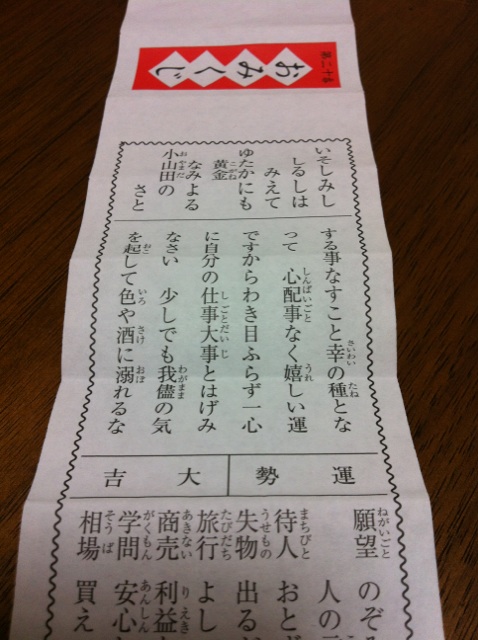 おみくじ
いそしみし
しるしは
みえて
ゆたかにも
黄金
なみよる
小山田の
さと
する事なすこと幸の種とな
って 心配事なく嬉しい運
ですからわき目ふらず一心
に自分の仕事大事とはげみ
なさい 少しでも我儘の気
を起して色や酒に溺れるな
運勢
大吉
願望 のぞ
人の
待人 おと
失物 出る
旅行 よし
商売 利益
学問 安心
相場 買え